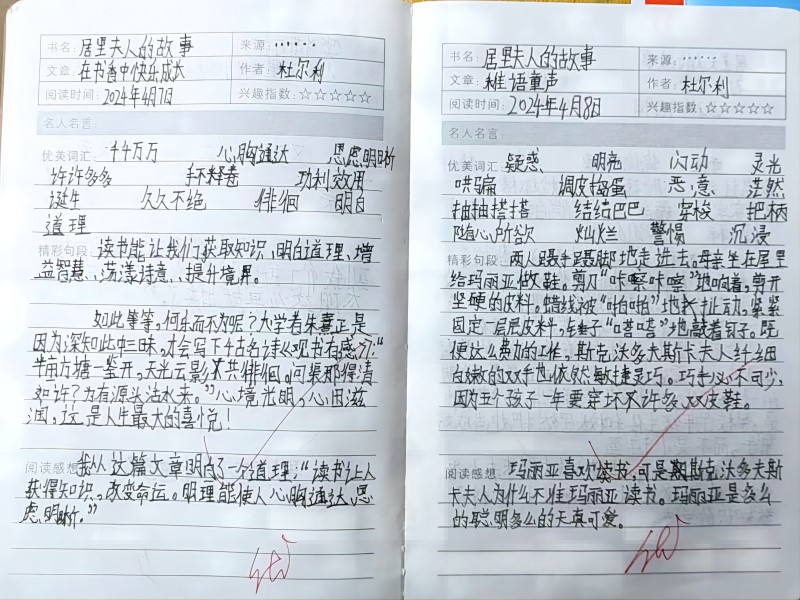 书名：居里夫人的故事 来源：……
文章：在书香中快乐成长 作者：杜尔利
阅读时间：2024年4月7日 兴趣指数：☆☆☆☆☆
名人名言
优美词汇：千千万万 心胸通达 思虑明晰
许许多多 手不释卷 功利效用
诞生 久久不绝 徘徊 明白
道理
精彩句段：读书能让我们获取知识、明白道理、增
益智慧、荡漾诗意、提升境界。
如此等等，何乐而不为呢？大学者朱熹正是
因为深知此中三昧，才会写下千古名诗《观书有感》：“
半亩方塘一鉴开，天光云影共徘徊。问渠那得清
如许？为有源头活水来。”心境光明，心田滋
润，这是人生最大的喜悦！
阅读感想：我从这篇文章明白了一个道理：“读书让人
获得知识，改变命运。明理能使人心胸通达、思
虑明晰。”
书名：居里夫人的故事 来源：……
文章：稚语童声 作者：杜尔利
阅读时间：2024年4月8日 兴趣指数：☆☆☆☆☆
名人名言
优美词汇：疑惑 明亮 闪动 灵光
哄骗 调皮捣蛋 恶意 茫然
抽抽搭搭 结结巴巴 穿梭 把柄
随心所欲 灿烂 警惕 沉浸
精彩句段：两人蹑手蹑脚地走进去。母亲坐在屋里
给玛丽亚做鞋。剪刀“咔嚓咔嚓”地响着，剪开
坚硬的皮料。蜡线被“啪啪”地扯动，紧紧
固定一层层皮料，锤子“嗒嗒”地敲着钉子。即
便这么费力的工作，斯克沃多夫斯卡夫人纤细
白嫩的双手也依然敏捷灵巧。巧手必不可少，
因为五个孩子一年要穿坏许多双皮鞋。
阅读感想：玛丽亚喜欢读书，可是斯克沃多夫斯
卡夫人为什么不准玛丽亚读书。玛丽亚是多么
的聪明多么的天真可爱。